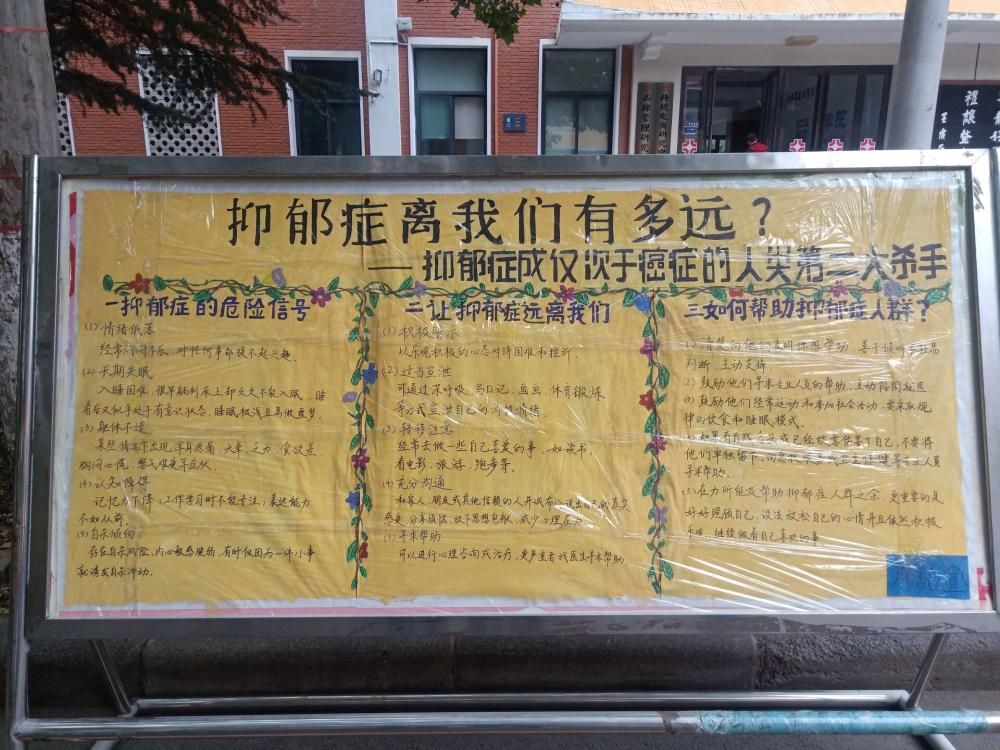 抑郁症离我们有多远？
——抑郁症成仅次于癌症的人类第二大杀手
一抑郁症的危险信号
(1) 情绪低落
经常闷闷不乐、对任何事都提不起兴趣。
(2) 长期失眠
入睡困难，很早躺到床上却久久不能入眠，睡
着后又似乎处于有意识状态，睡眠极浅且易做噩梦。
(3) 躯体不适
某些情况下出现浑身疼痛、头晕、乏力、食欲差、
胸闷心慌、
(4) 认知障碍
记忆力下降，工作学习时不能专注，表达能力
不如从前。
(5) 自杀倾向
存在自杀风险，内心敏感脆弱，有时仅因为一件小事
就诱发自杀冲动。
二让抑郁症远离我们
(1) 积极暗示
以乐观积极的心态对待困难和挫折。
(2) 适当宣泄
可通过深呼吸、写日记、画画、体育锻炼
等方式宣泄自己的消极情绪。
(3) 转移注意
经常去做一些自己喜爱的事、如读书、
看电影、旅游、跑步等。
(4) 充分沟通
和家人、朋友或其他信赖的人开诚布公说出自己的真实
感受，分享烦恼，放下思想包袱，减少心理压力
(5) 寻求帮助
可以进行心理咨询或治疗，更严重者找医生寻求帮助。
三如何帮助抑郁症人群？
(1) 清楚向他们表明你想帮助，善于倾听不轻易
判断、主动支持。
(2) 鼓励他们寻求专业人员的帮助，主动陪同就医。
(3) 鼓励他们经常运动和参加社会活动，要采取规
律的饮食和睡眠模式。
如果有自残念头或已经故意伤害了自己，不要将
他们单独留下，专业人员
寻求帮助。
(5) 在力所能及帮助抑郁症人群之余，更重要的是
好好照顾自己，设法放松自己的心情并且依然积极
乐观，继续做着自己喜欢的事